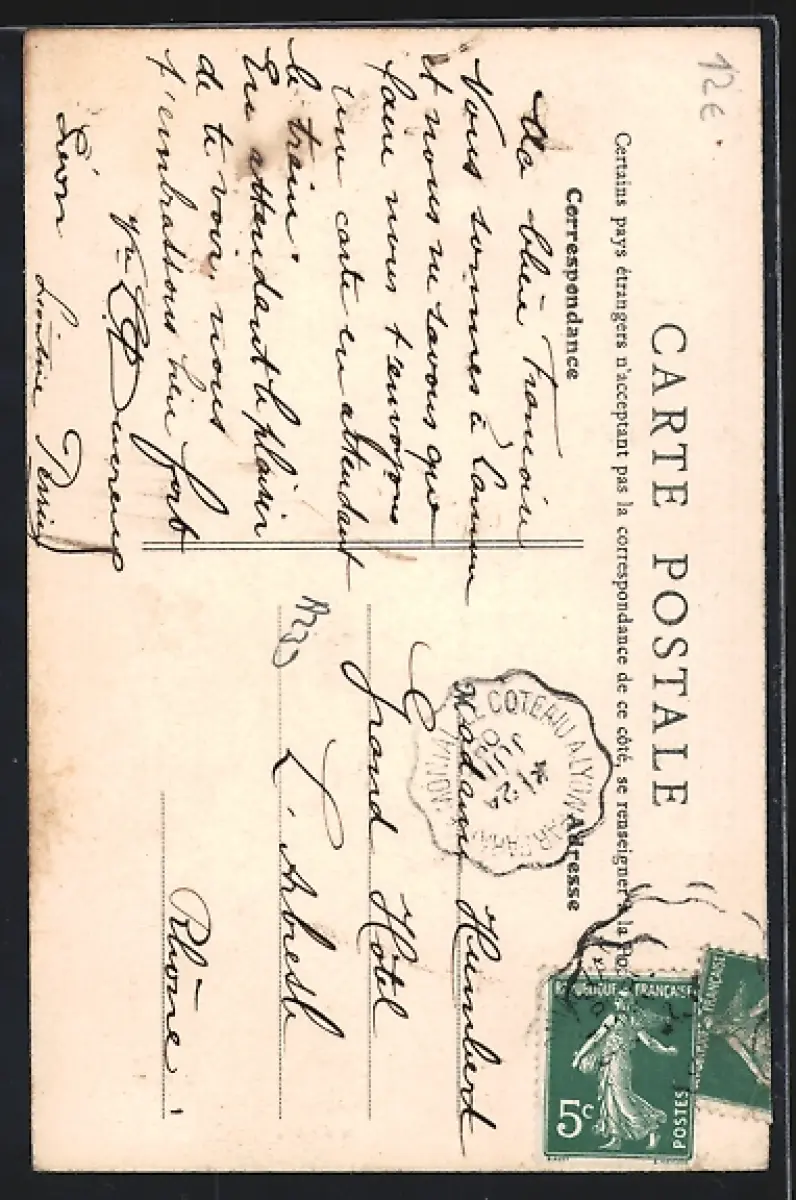 12€.
CARTE POSTALE
Certains pays étrangers n'acceptant pas la correspondance de ce côté, se renseigner à la Po
Correspondance
Adresse
Ma chère
Nous sommes à
et nous ne savons que
faire nous t'envoyons
une carte en attendant
le train.
En attendant le plaisir
de te voir, nous
t'embrassons bien fort
Léon Léontine
LE COTEAU A LYON PAR
24
Madame Humbert
Grand Hôtel
L'Arbresle
Rhône.
REPUBLIQUE FRANÇAISE
5c
POSTES
FRANÇAISE